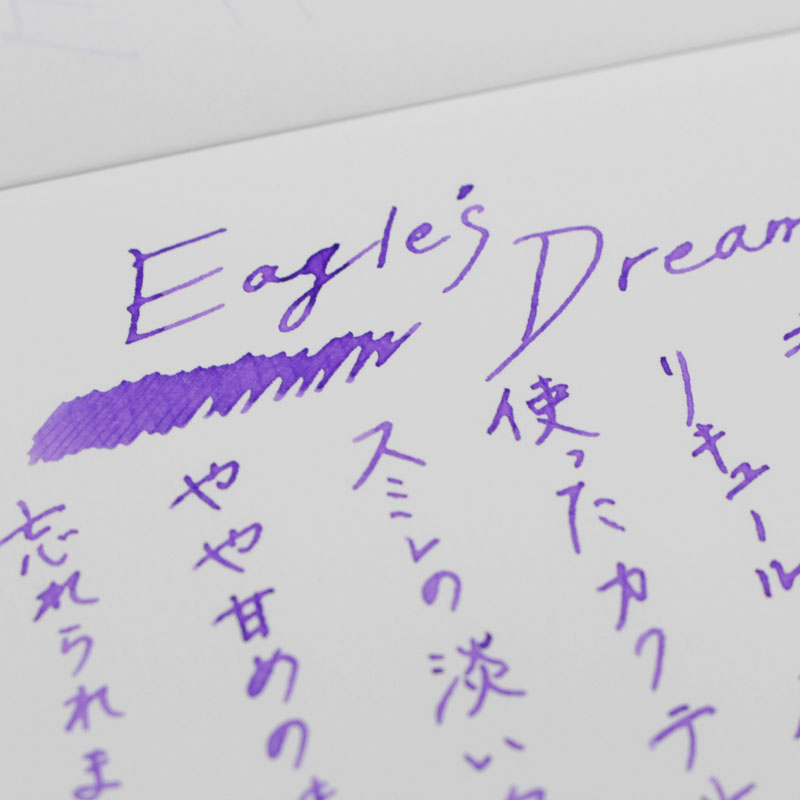 Eagle's Dream
リキュール
使ったカクテ
スミレの淡い
やや甘めの
忘れられま